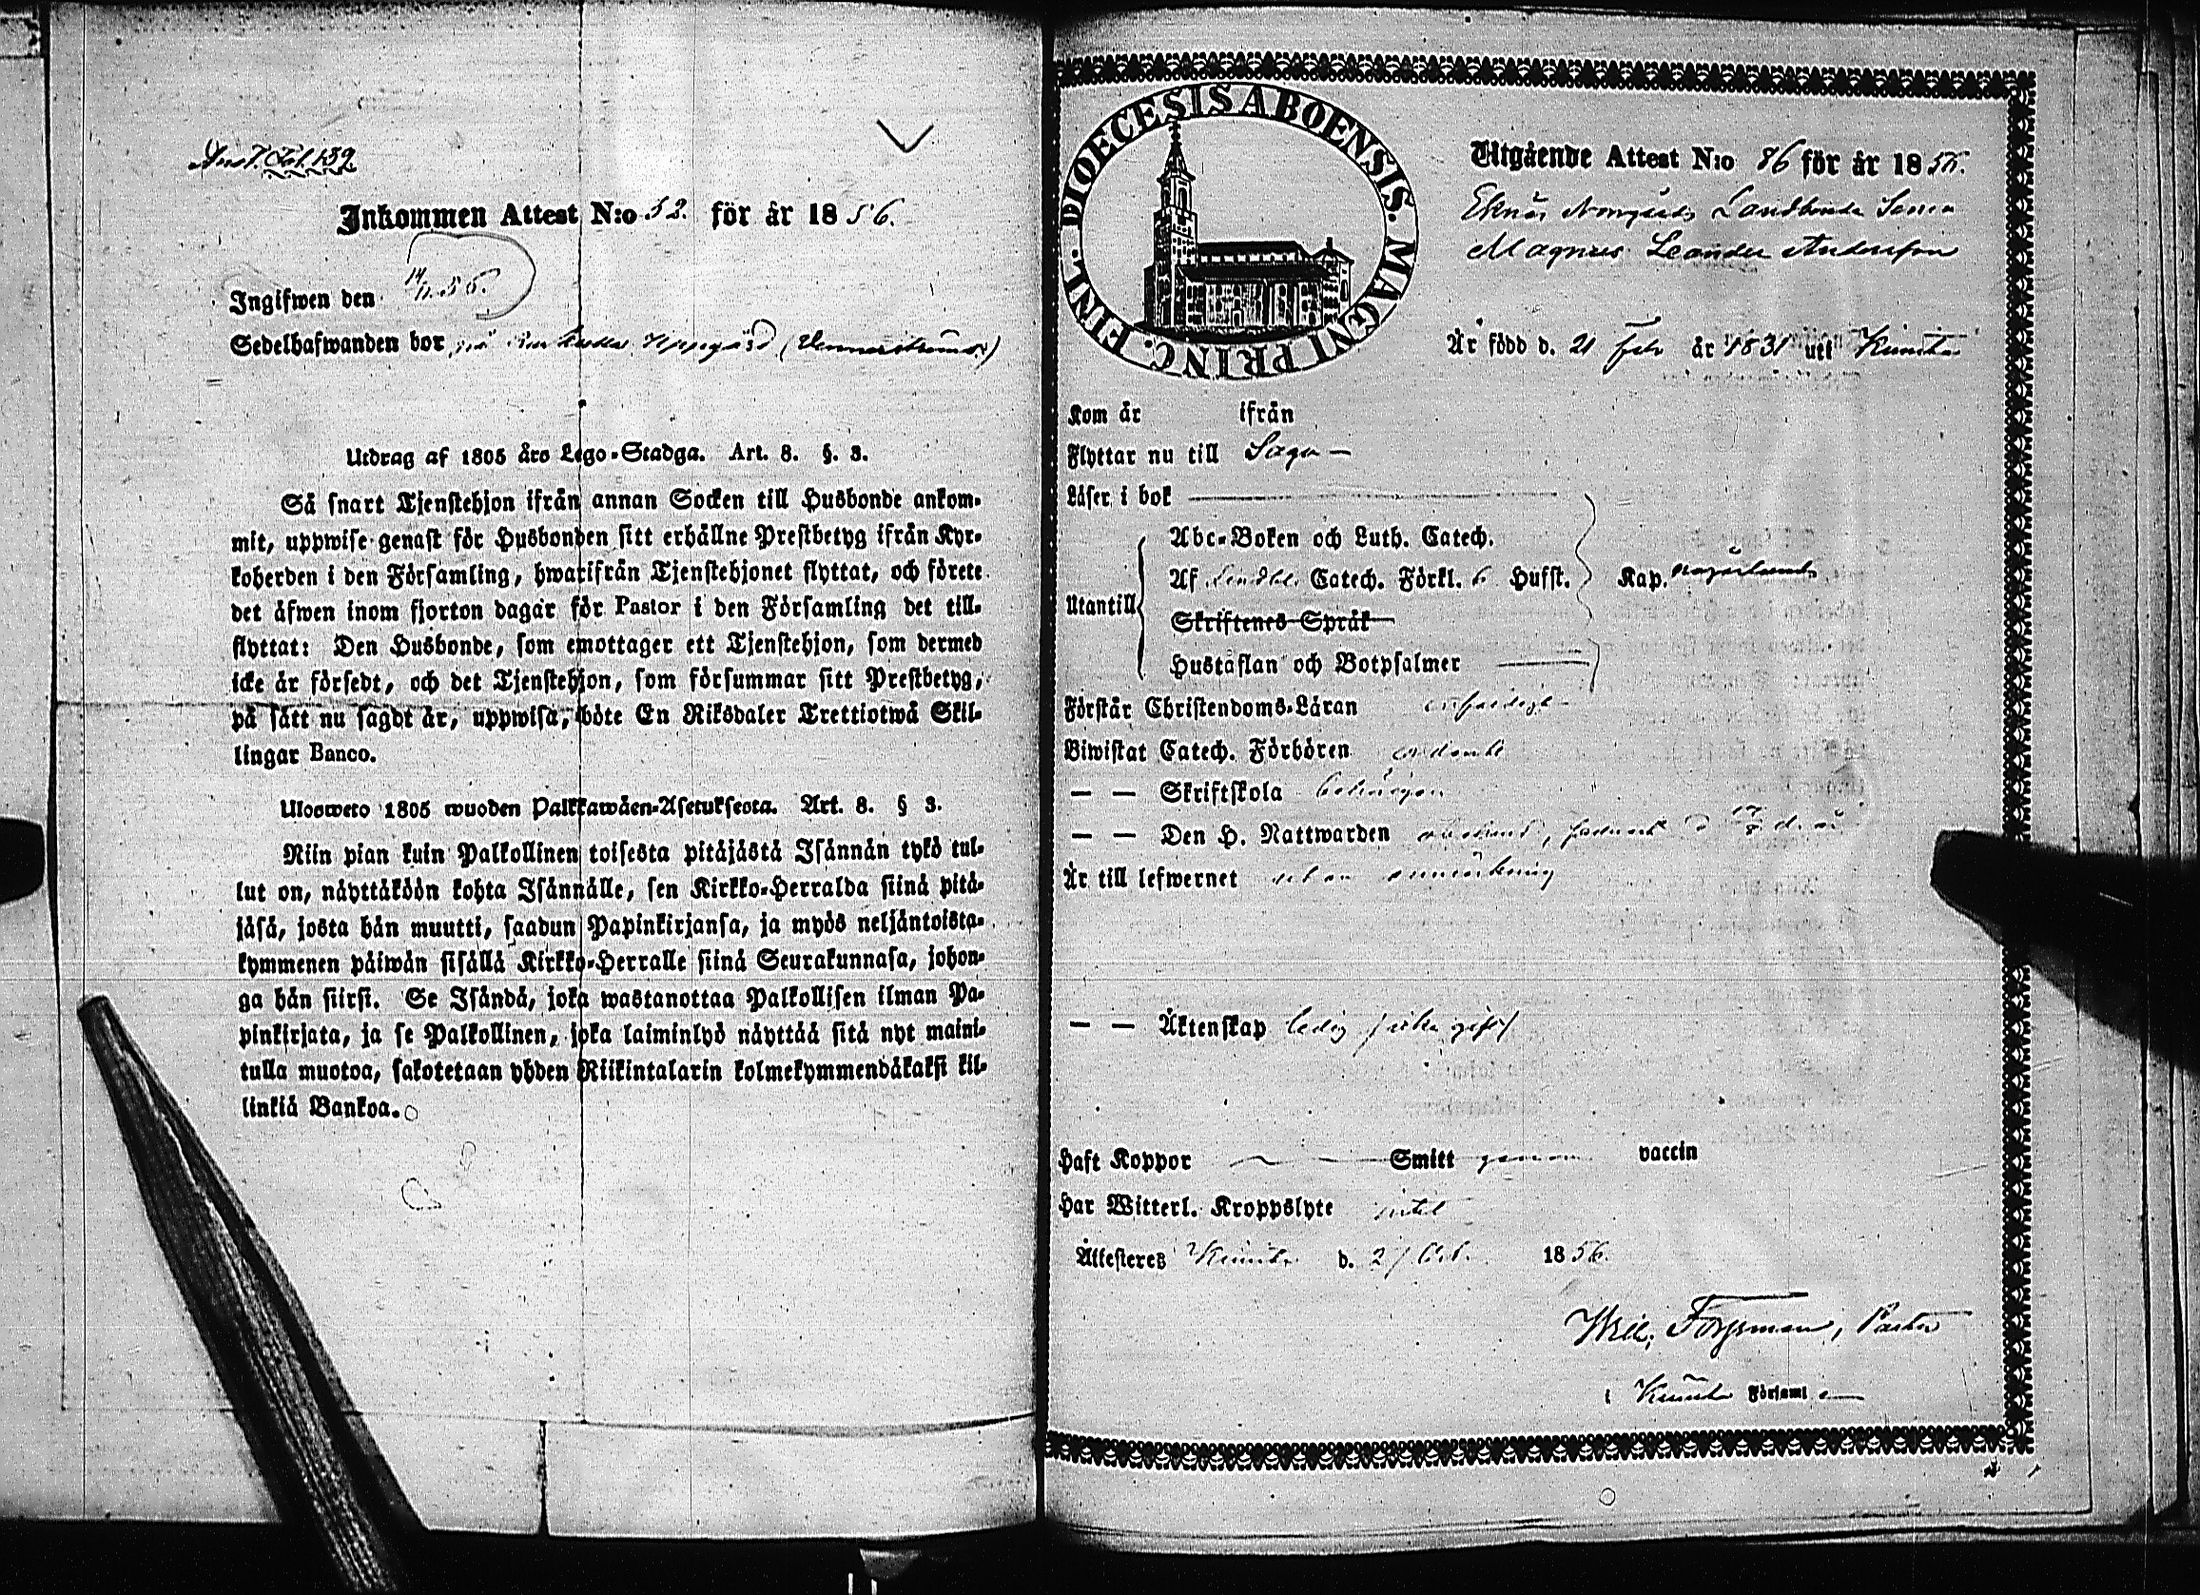 Inkommen Attest N:o 52. för år 1856.
Ingifwen den 14/11 56.
Sedelhafwanden bor på Uppgård
Utdrag af 1805 års Lego-Stadga. Art. 8. §. 3.
Så snart Tjenstehjon ifrån annan Socken till Husbonde ankom-
mit, uppwise genast för Husbonden sitt erhållne Prestbetyg ifrån Kyr-
koherden i den Församling, hwarifrån Tjenstehjonet flyttat, och förete
det äfwen inom fjorton dagar för Pastor i den Församling det till-
flyttat: Den Husbonde, som emottager ett Tjenstehjon, som dermed
icke är försedt, och det Tjenstehjon, som försummar sitt Prestbetyg,
på sätt nu sagdt är, uppwisa, böte En Riksdaler Trettiotwå Skil-
lingar Banco.
Ulosweto 1805 wuoden Palkkawäen-Asetuksesta. Art. 8. § 3.
Niin pian kuin Palkollinen toisesta pitäjästä Isännän tykö tul-
lut on, näyttäköön kohta Isännälle, sen Kirkko-Herralda siinä pitä-
jäsä, josta hän muutti, saadun Papinkirjansa, ja myös neljäntoista-
kymmenen päiwän sisällä Kirkko-Herralle siinä Seurakunnasa, johon-
ga hän siirsi. Se Isändä, joka wastanottaa Palkollisen ilman Pa-
pinkirjata, ja se Palkollinen, joka laiminlyö näyttää sitä nyt maini-
tulla muotoa, sakotetaan yhden Riikintalarin kolmekymmendäkaksi kil-
linkiä Bankoa.
DIOECESIS ABOENSIS. MAGNI PRINC. FINL.
Utgående Attest N:o 86 för år 1856.
Eknäs Norrgårds Landbonde Sonen
Magnus Leander Andersson
Är född d. 21 Febr år 1831 uti Kimito
Kom år ifrån
Flyttar nu till Sagu
Läser i bok
Utantill
Abc-Boken och Luth. Catech.
Af Lindbl. Catech. Förkl. 6 Hufst. Kap. någorlunda
Skriftenes Språk
Hustaflan och Botpsalmer
Förstår Christendoms-Läran
Biwistat Catech. Förhören
— — Skriftskola
— — Den H. Nattwarden
Är till lefwernet utan anmärkning
— — Äktenskap ledig
Haft Koppor Smitt genom vaccin
Har Witterl. Kroppslyte intet
Attesteres Kimito d. 27 Oct. 1856
Forsman, Pastor
i Kimito Församl